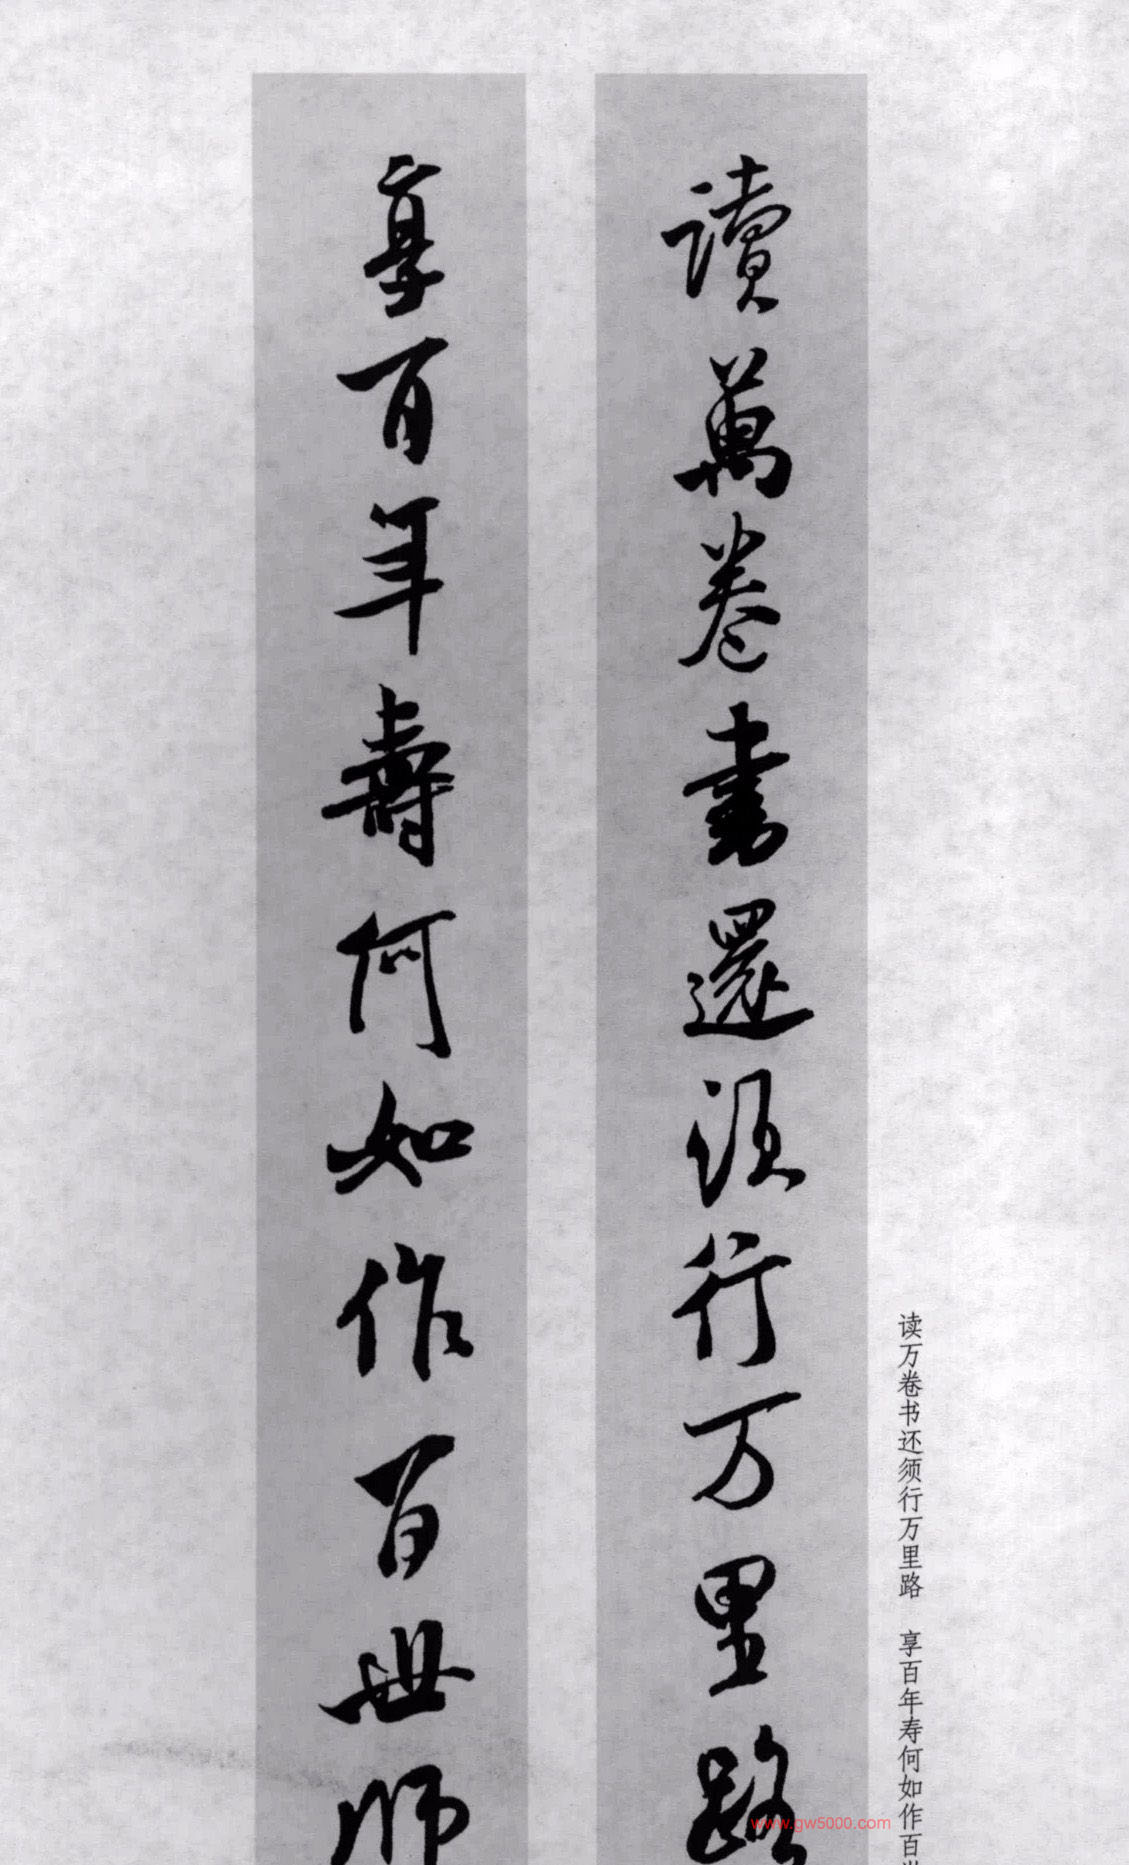 讀萬卷書還須行万里路
享百年壽何如作百世師
读万卷书还须行万里路 享百年寿何如作百世
www.gw5000.com